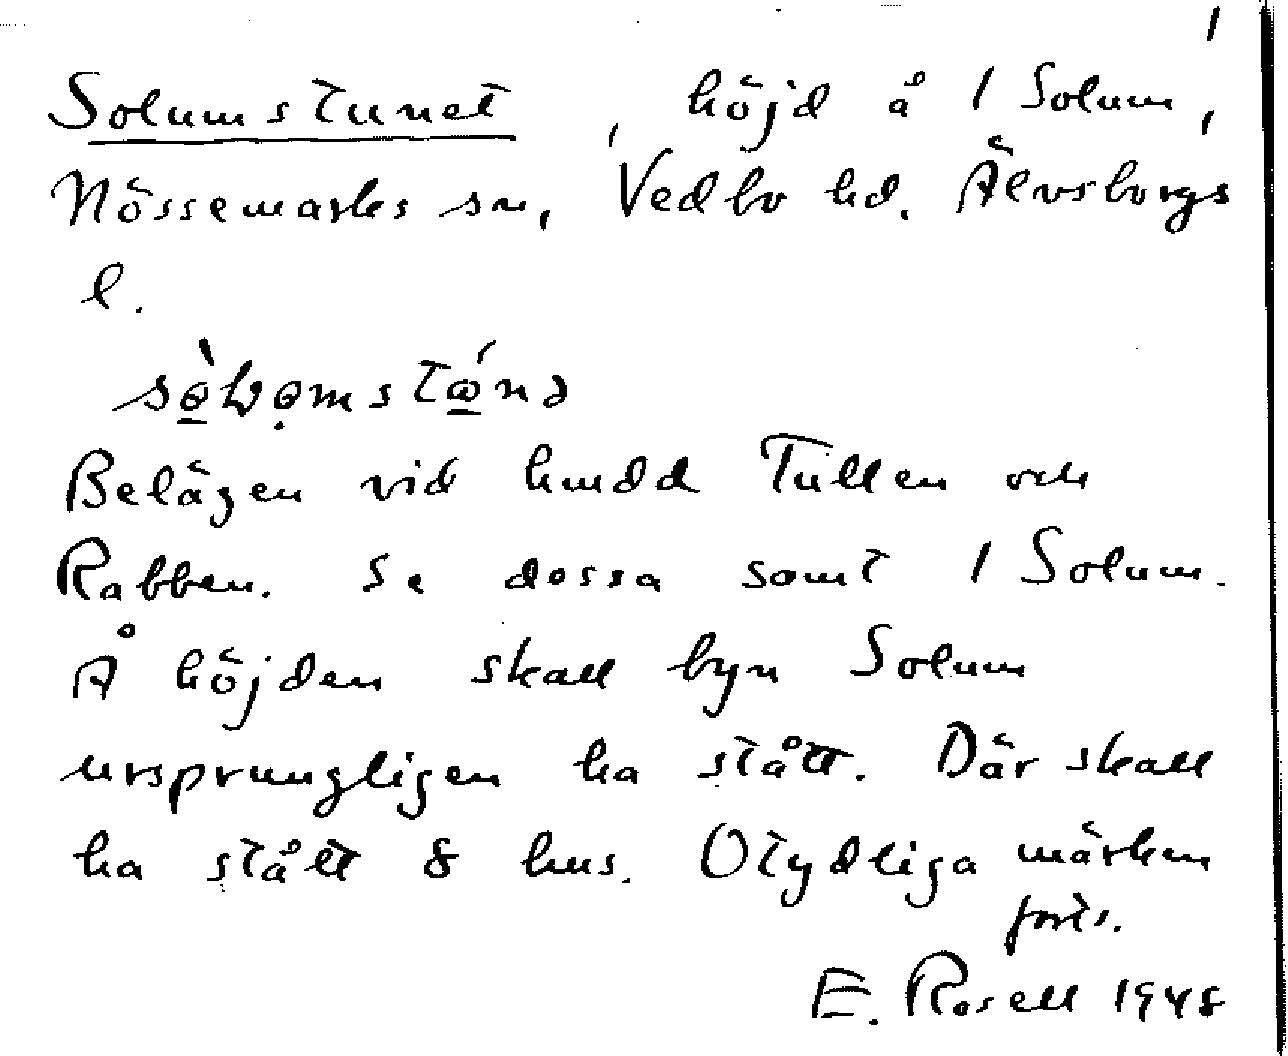 1
Solumstunet, höjd å 1 Solum,
Nössemarks sn, Vedbo hd. Älvsborgs
l.
Belägen vid hmdd Tullen och
Rabben. Se dessa samt 1 Solum.
Å höjden skall byn Solum
ursprungligen ha stått. Där skall
ha stått 8 hus. Otydliga märken
forts.
E. Rosell 1948